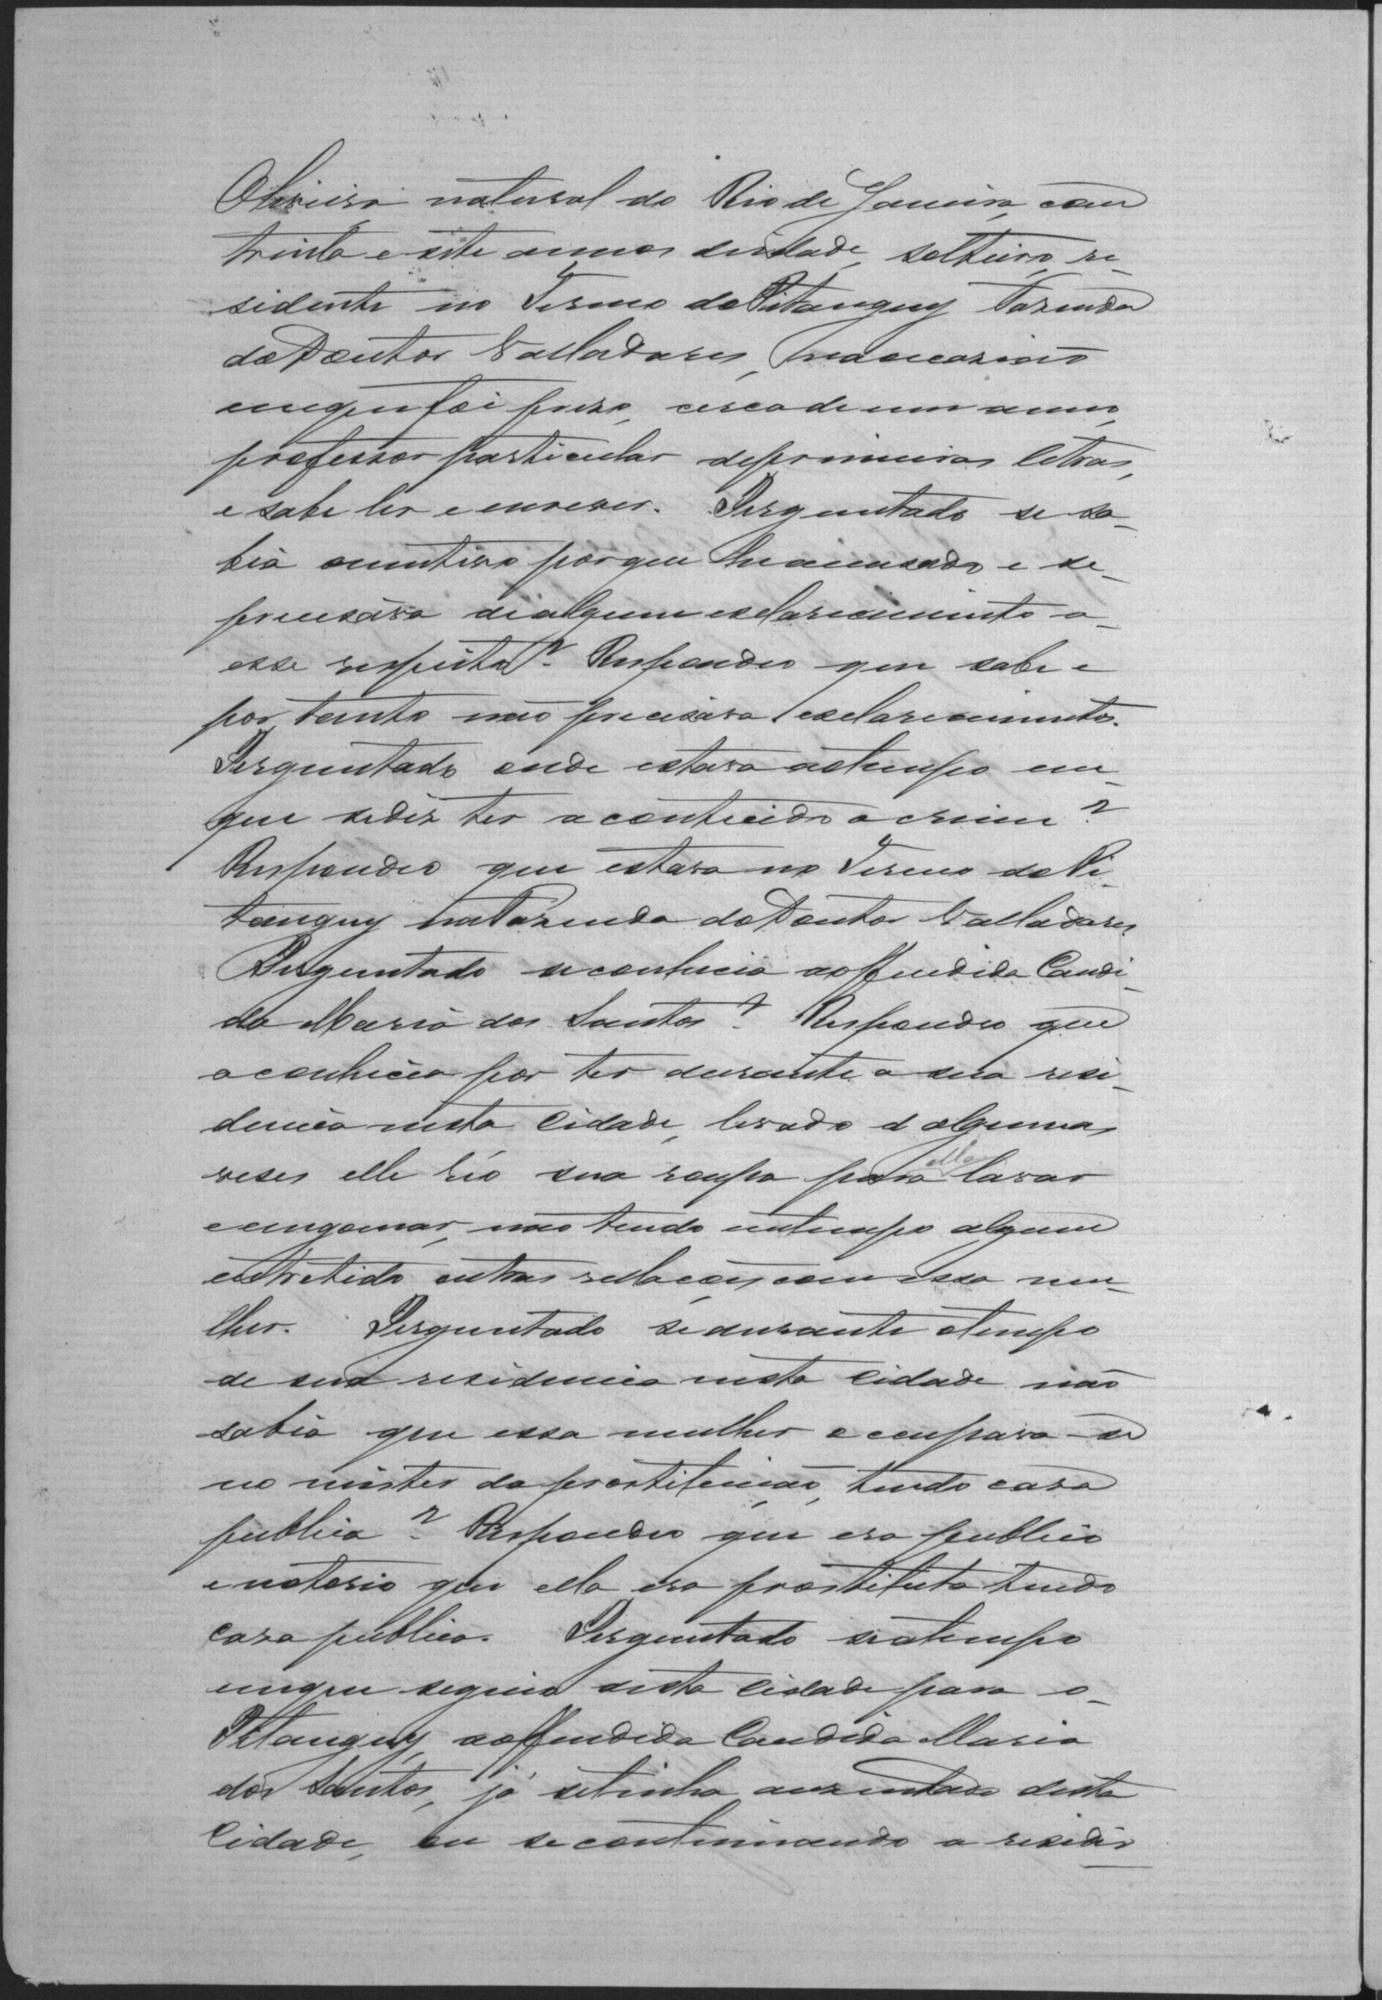 Oliveira, natural do Rio de Janeiro, com
trinta e sete annos de idade, solteiro, re-
sidente no Termo do Pitanguy Fazenda
do Doutor Valladares, na occasião
em que foi preso, cerca de um anno,
professor particular de primeiras letras,
e sabe ler e escrever. Perguntado se sa-
bia o motivo porque he accusado e se
precisava de algum esclarecimento a-
esse respeito? Respondeo que sabe e
por tanto não precisava esclarecimentos.
Perguntado onde estava ao tempo em-
que se diz ter acontecido o crime?
Respondeo que estava no Termo do Pi-
tanguy na Fazenda do Doutor Valladares
Perguntado se conhecia a offendida Candi-
da Maria dos Santos? Respondeo que
a conhecia por ter durante a sua resi-
dencia nesta Cidade, levado algumas
veses elle réo sua roupa para ella lavar
e engomar, não tendo em tempo algum
entretido outras relações com essa mu-
lher. Perguntado se durante o tempo
de sua residencia nesta Cidade não
sabia que essa mulher occupava-se
no mister da prostituição, tendo casa
publica? Respondeo que era publico
e notorio que ella era prostituta tendo
casa publica. Perguntado se ao tempo
em que seguio desta Cidade para o-
Pitanguy, a offendida Candida Maria
dos Santos, já se tinha auzentado desta
Cidade, ou se continuando a residir